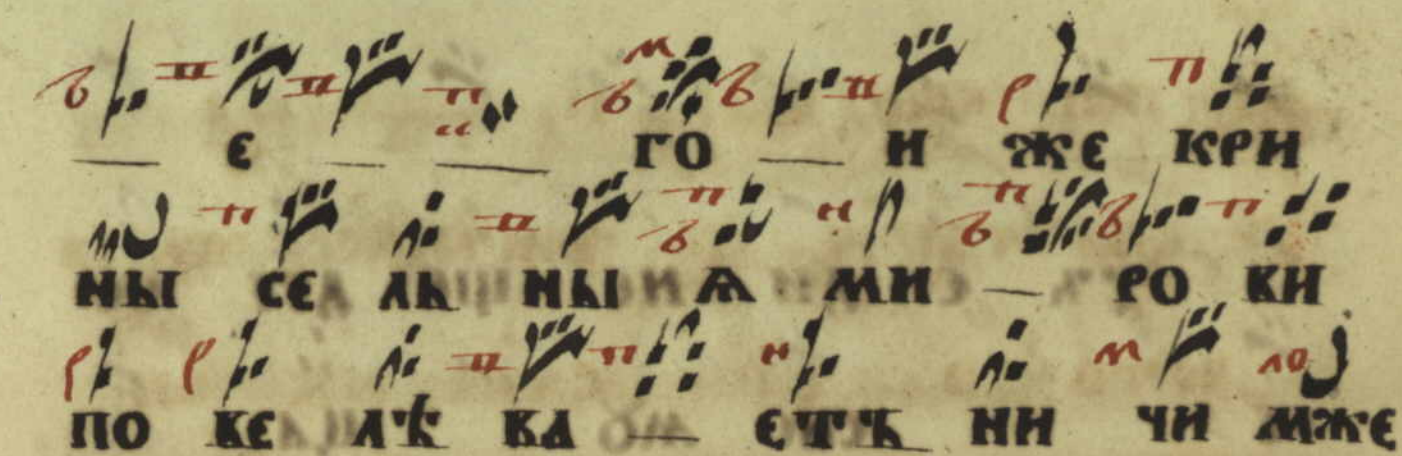 — Е — — ГО — И ЖЕ КРИ
НЫ СЕ ЛЬ НЫ Ѧ МИ — РО ВИ
ПО ВЕ ЛѢ ВА — ЕТЪ НИ ЧИ МЖЕ